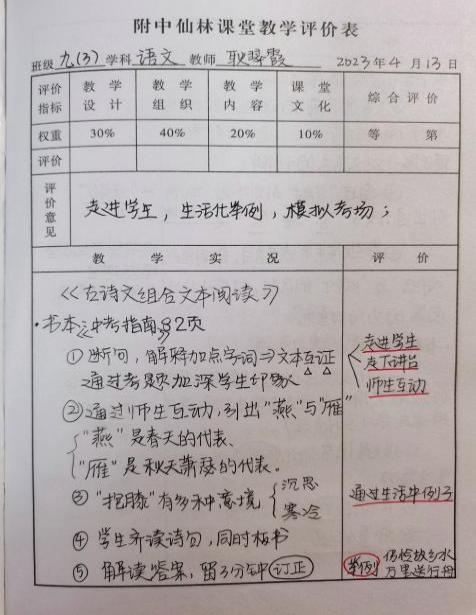 附中仙林课堂教学评价表
班级 九(3) 学科 语文 教师 耿翠霞 2023年4月13日
评价指标 教学设计 教学组织 教学内容 课堂文化 综合评价
权重 30% 40% 20% 10% 等第
评价
评价意见 走进学生，生活化举例，模拟考场；
教学实况 评价
《古诗文组合文本阅读》
·书本《中考指南》92页
①断句，解释加点字词⇒文本互证 走进学生
走下讲台
通过考题加深学生印象 师生互动
②通过师生互动，引出"燕"与"雁"
"燕"是春天的代表、
"雁"是秋天萧瑟的代表。
③"抱膝"有多种意境 沉思 通过生活中例子
寒冷
④学生齐读诗句，同时板书
⑤解读答案，留3分钟订正 举例 仍怜故乡水
万里送行舟